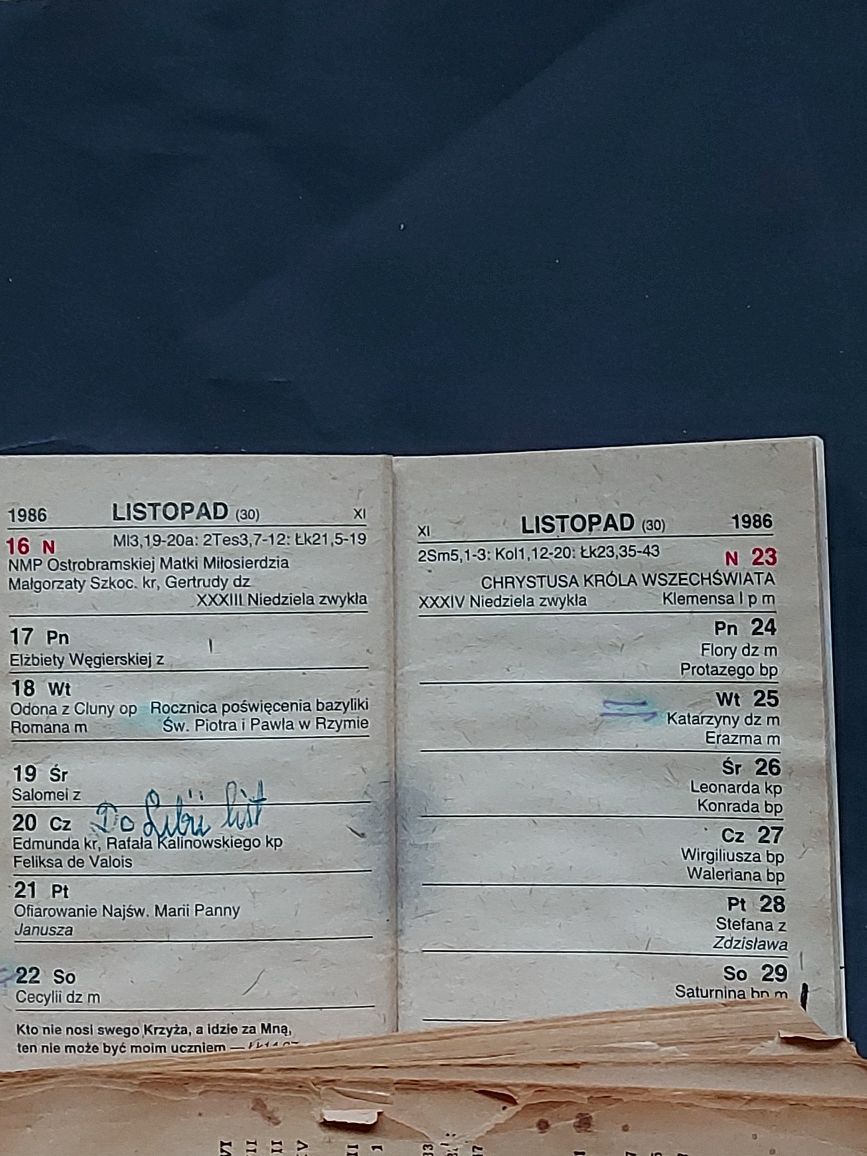 1986 LISTOPAD (30) XI
16 N Ml3,19-20a: 2Tes3,7-12: Łk21,5-19
NMP Ostrobramskiej Matki Miłosierdzia
Małgorzaty Szkoc. kr, Gertrudy dz
XXXIII Niedziela zwykła
17 Pn
Elżbiety Węgierskiej z
18 Wt
Odona z Cluny op Rocznica poświęcenia bazyliki
Romana m Św. Piotra i Pawła w Rzymie
19 Śr
Salomei z
20 Cz Do Libii list
Edmunda kr, Rafała Kalinowskiego kp
Feliksa de Valois
21 Pt
Ofiarowanie Najśw. Marii Panny
Janusza
22 So
Cecylii dz m
Kto nie nosi swego Krzyża, a idzie za Mną,
ten nie może być moim uczniem —
XI LISTOPAD (30) 1986
2Sm5,1-3: Kol1,12-20: Łk23,35-43 N 23
CHRYSTUSA KRÓLA WSZECHŚWIATA
XXXIV Niedziela zwykła Klemensa I p m
Pn 24
Flory dz m
Protazego bp
Wt 25
Katarzyny dz m
Erazma m
Śr 26
Leonarda kp
Konrada bp
Cz 27
Wirgiliusza bp
Waleriana bp
Pt 28
Stefana z
Zdzisława
So 29
Saturnina bp m